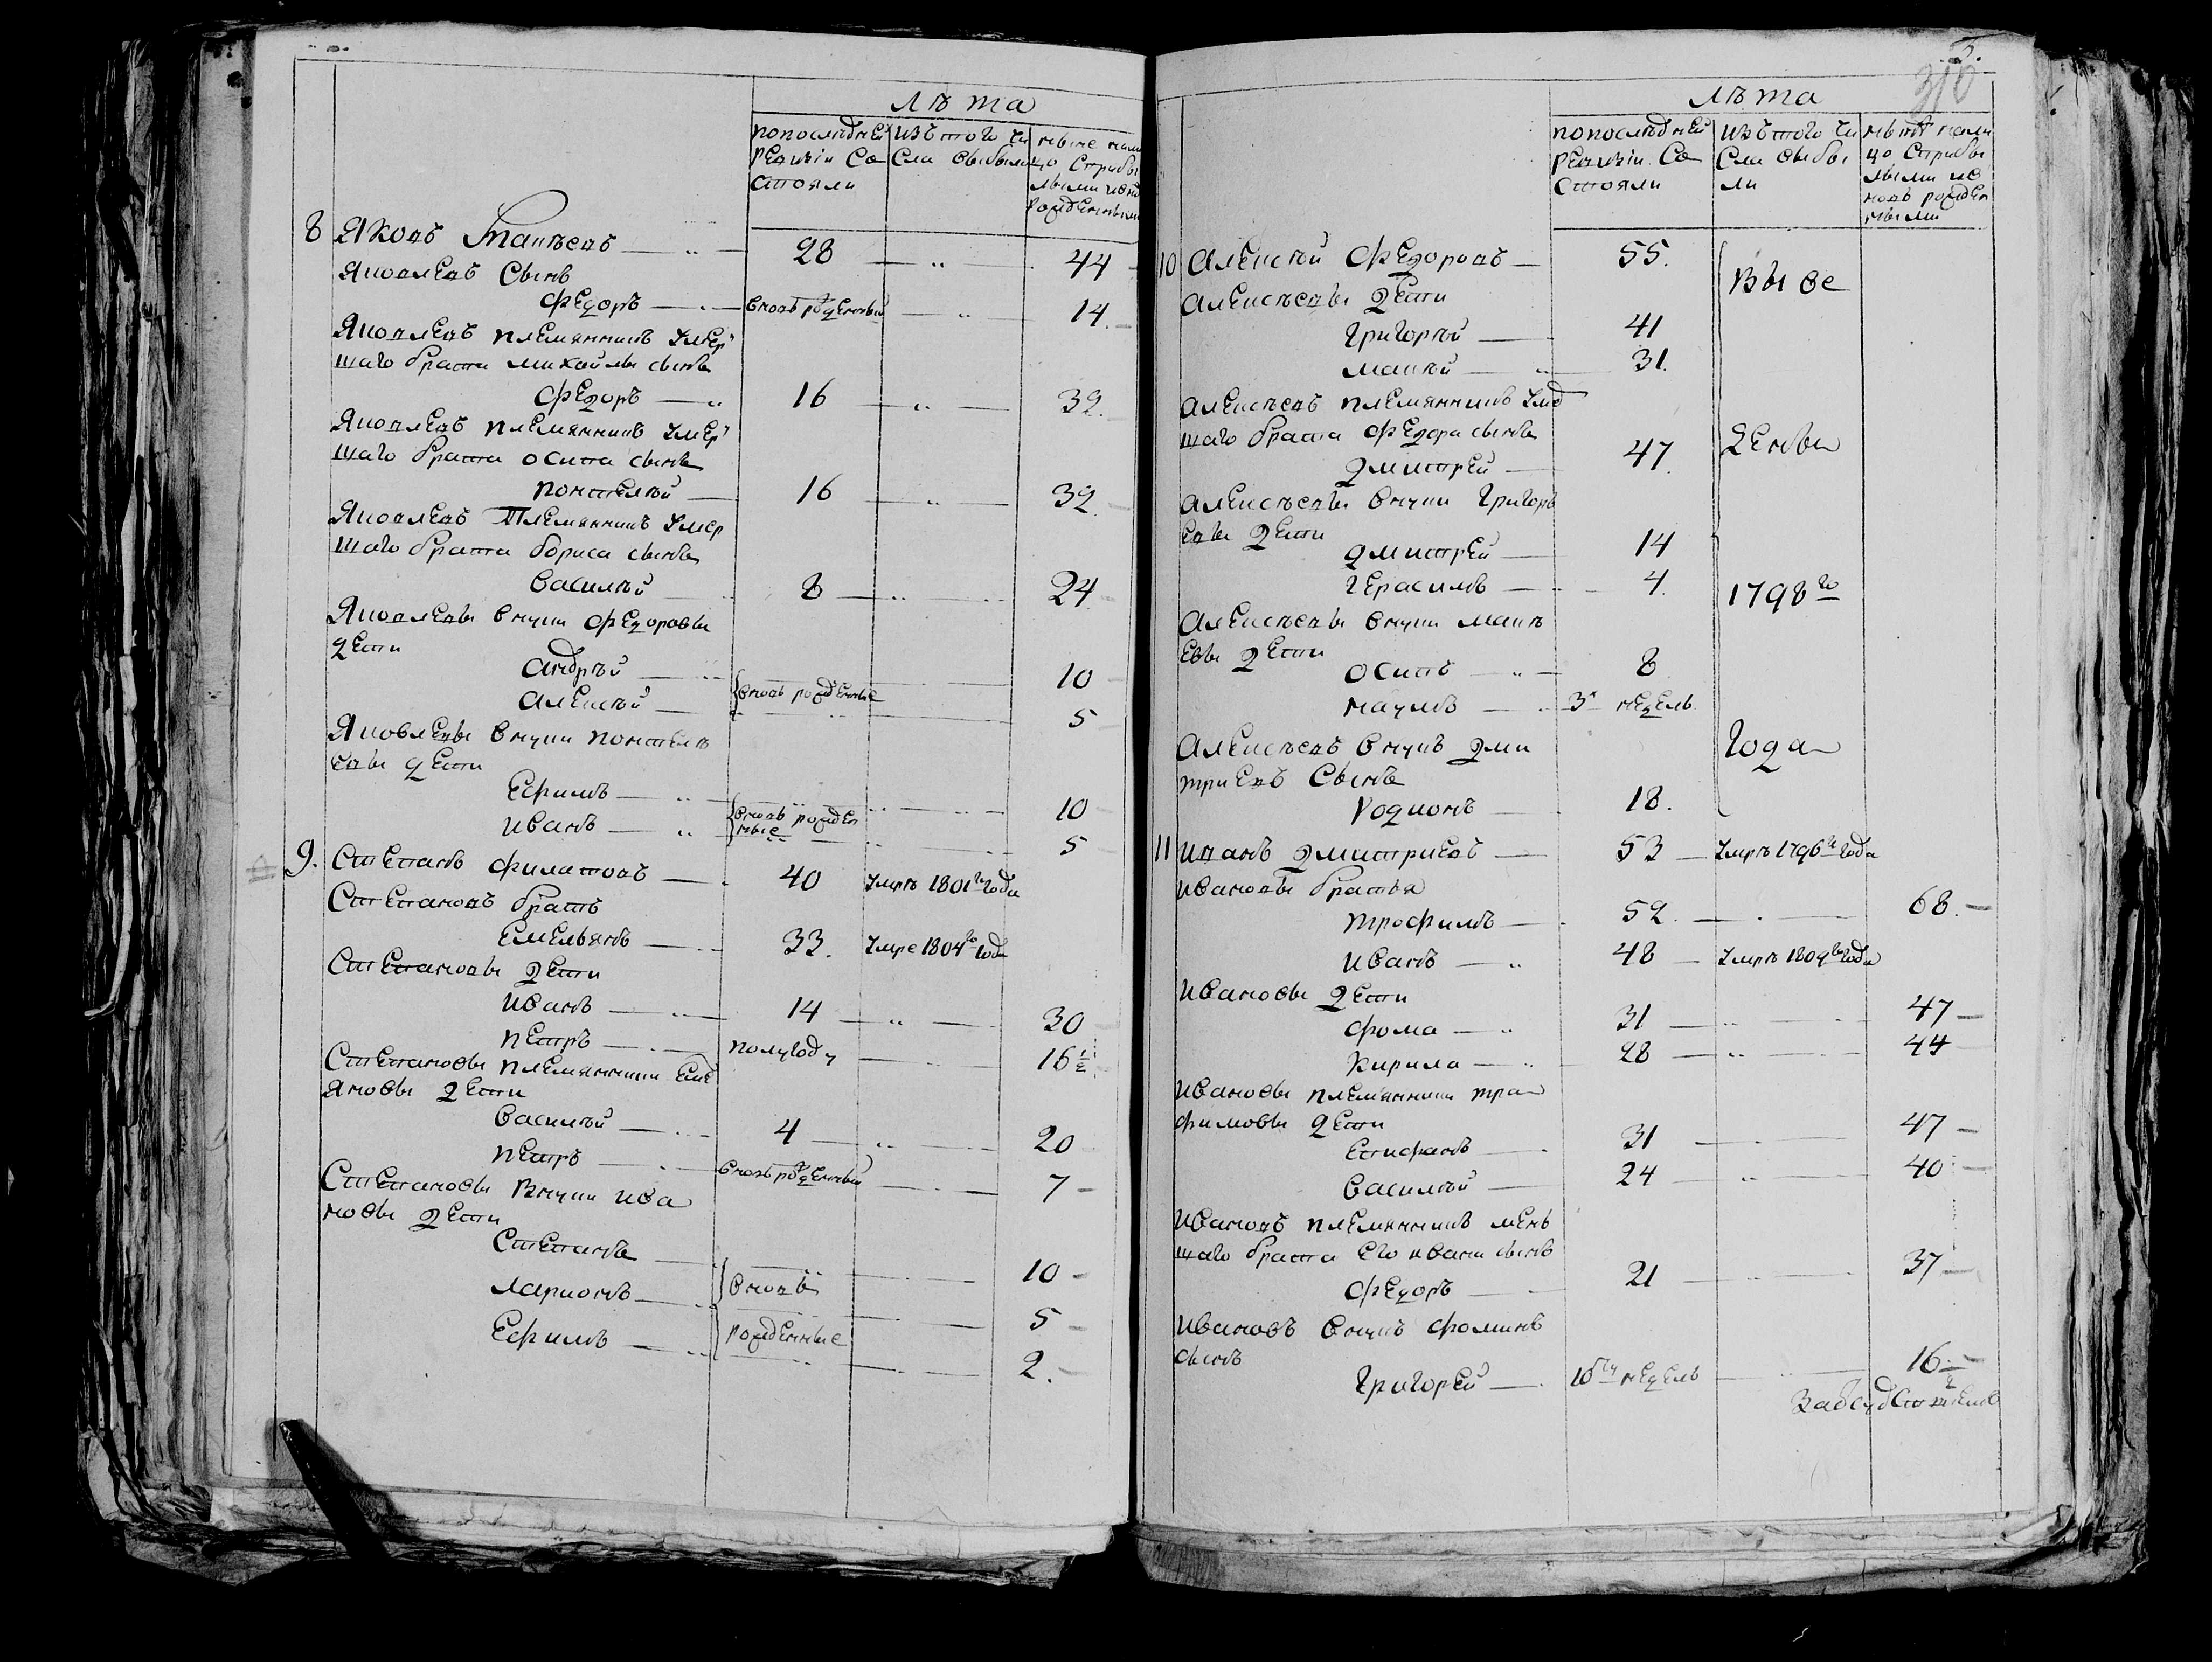 лѣта
по последней
ревизіи со
стояли
изъ того чи
сла выбыли
ныне нали
цо с прибы
лыми и внов
рожденными
8 Яковъ Матвеевъ 28 44
Яковлевъ сынъ
Федоръ вновь рожденный 14
Яковлевъ племянникъ умер
шаго брата михайлы сынъ
Федоръ 16 32
Яковлевъ племянникъ умер
шаго брата осипа сынъ
Понтелѣй 16 32
Яковлевъ племянникъ умер
шаго брата бориса сынъ
Василѣй 8 24
Яковлевы внуки Федоровы
дети
Андрѣй 10
вновь рожденные
Алексѣй 5
Яковлевы внуки понтелѣ
евы дети
Ефимъ 10
вновь рожден
ные
Иванъ 5
9. Степанъ Филатовъ 40 умрѣ 1801го года
Степановъ братъ
Емельянъ 33. умре 1804го года
Степановы дети
Иванъ 14 30
Петръ полугоду 16 1/2
Степановы племянники емел
яновы дети
Василѣй 4 20
Петръ вновь рожденный 7
Степановы внуки ива
новы дети
Степанъ 10
вновь
Ларионъ 5
рожденные
Ефимъ 2.
5.
310
лѣта
по последней
ревизіи со
стояли
изъ того чи
сла выбы
ли
нынѣ нали
цо с прибы
лыми и в
новь рожден
ными
10 Алексѣй Федоровъ 55.
вы ве
Алексѣевы дети
Григорѣй 41
Макѣй 31.
Алексѣевъ племянникъ умер
шаго брата Федора сынъ
Дмитрей 47.
дены
Алексѣевы внуки Григорь
евы дети
Дмитрей 14
Герасимъ 4.
1798го
Алексѣевы внуки макѣ
евы дети
Осипъ 8
Наумъ 3х недель
Алексѣевъ внукъ дми
триевъ сынъ
года
Родионъ 18.
11 Иванъ Дмитриевъ 53 умрѣ 1796го года
Ивановы братья
Трофимъ 52. 68.
Иванъ 48 умрѣ 1809го года
Ивановы дети
Фома 31 47
Кирила 28 44
Ивановы племянники тра
фимовы дети
Епифанъ 31 47
Василѣй 24 40
Ивановъ племянникъ мень
шаго брата его ивана сынъ
Федоръ 21 37
Ивановъ внукъ фоминъ
сынъ
Григорей 10ти недель 16